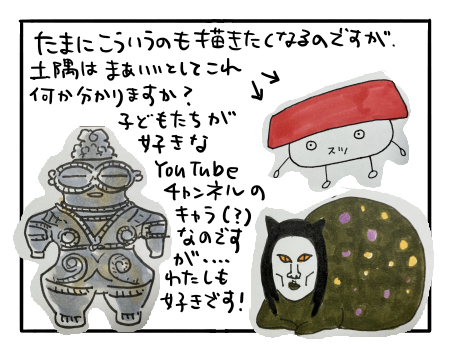 たまにこういうのも描きたくなるのですが.
土隅はまあいいとしてこれ
何か分かりますか?
子どもたちが
好きな
YouTube
チャンネルの
キャラ(?)
なのです
が....
わたしも
好きです!
スン